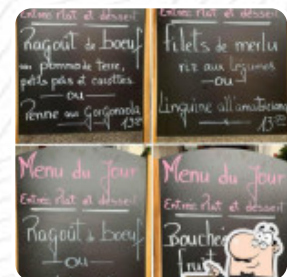 Entrée Plat et dessert
Ragoût de boeuf
aux pommes de terre,
petits pois et carottes
OU
Penne au Gorgonzola
13
Entrée Plat et dessert
filets de merlu
riz aux légumes
OU
Linguine all'amatriciana
13
Menu du Jour
Entrée Plat et dessert
Ragoût de boeuf
OU
Menu du Jour
Entrée Plat et dessert
Bouchée
fruit